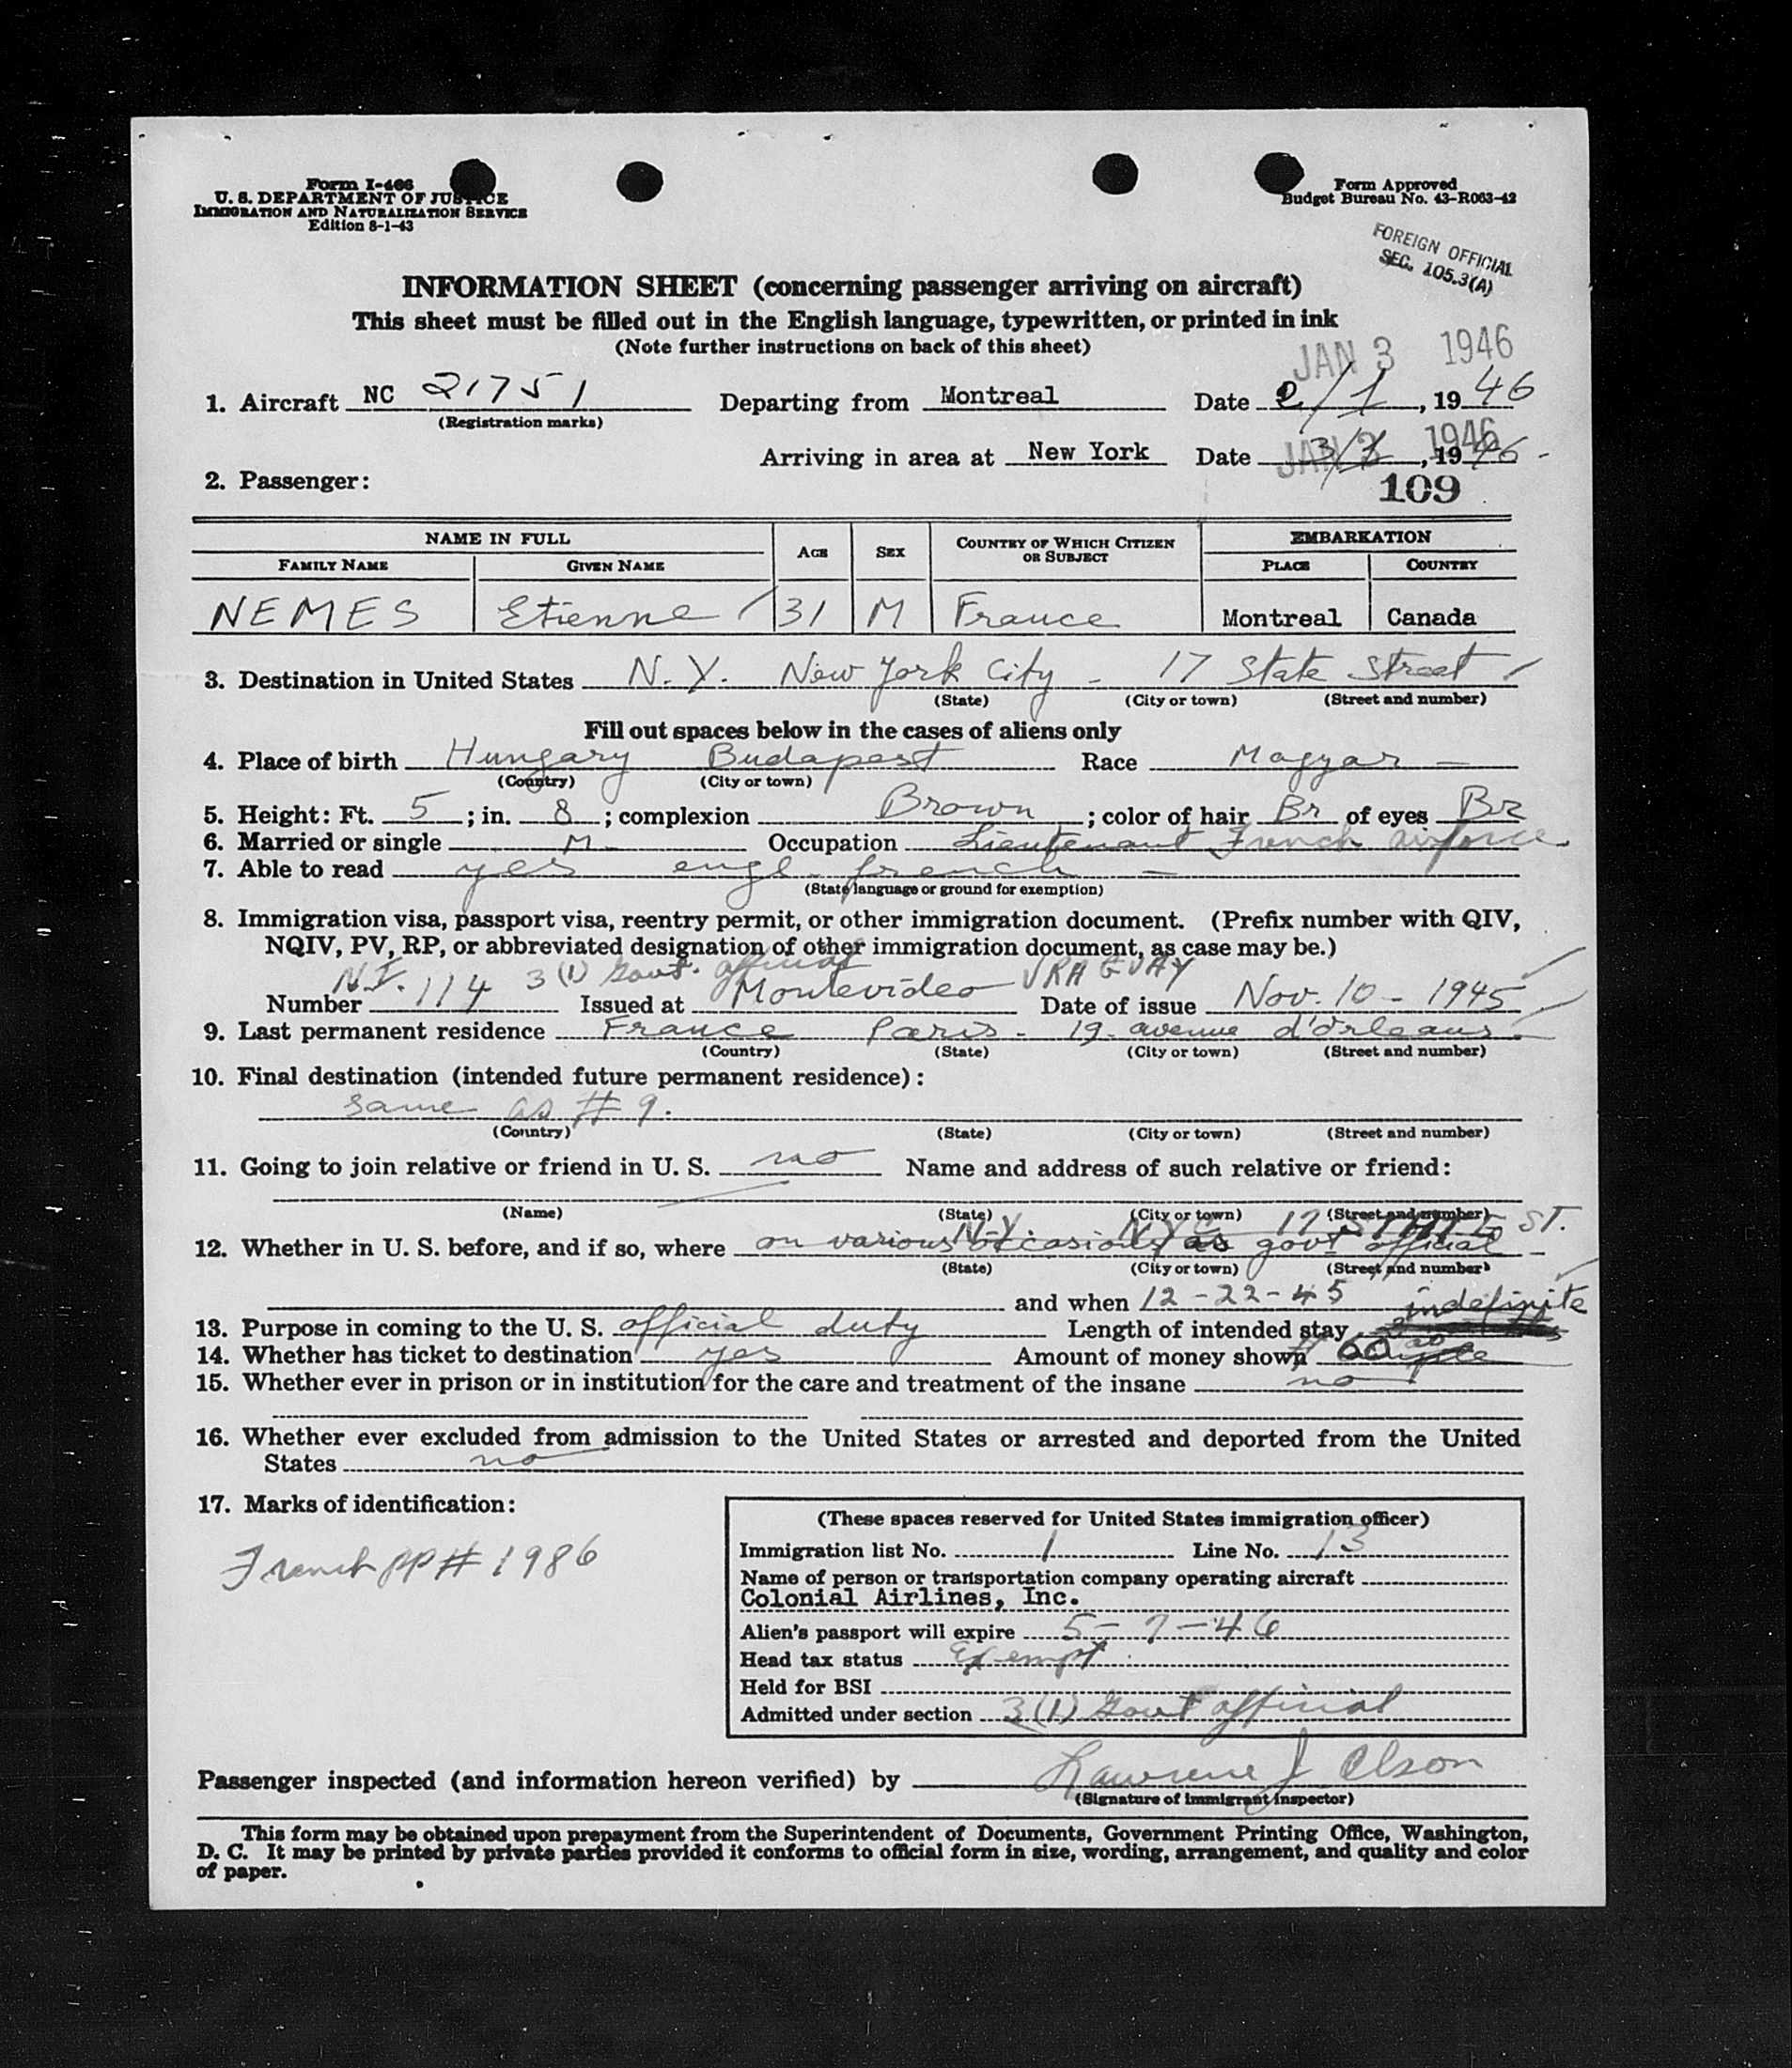 Form I-466
U. S. DEPARTMENT OF JUSTICE
IMMIGRATION AND NATURALIZATION SERVICE
Edition 8-1-43
Form Approved
Budget Bureau No. 43-R063-42
FOREIGN OFFICIAL
SEC. 105.3(A)
INFORMATION SHEET (concerning passenger arriving on aircraft)
This sheet must be filled out in the English language, typewritten, or printed in ink
(Note further instructions on back of this sheet)
JAN 3 1946
1. Aircraft NC 21751 Departing from Montreal Date 2/1, 1946
(Registration marks)
JAN 3 1946
Arriving in area at New York Date 3/1, 1946 -
2. Passenger:
109
NAME IN FULL AGE SEX COUNTRY OF WHICH CITIZEN OR SUBJECT EMBARKATION
FAMILY NAME GIVEN NAME PLACE COUNTRY
NEMES Etienne 31 M France Montreal Canada
3. Destination in United States N.Y. New York City - 17 State Street
(State) (City or town) (Street and number)
Fill out spaces below in the cases of aliens only
4. Place of birth Hungary Budapest Race Magyar -
(Country) (City or town)
5. Height: Ft. 5; in. 8; complexion Brown; color of hair Br of eyes Br
6. Married or single M Occupation Lieutenant French airforce
7. Able to read yes engl. french -
(State language or ground for exemption)
8. Immigration visa, passport visa, reentry permit, or other immigration document. (Prefix number with QIV,
NQIV, PV, RP, or abbreviated designation of other immigration document, as case may be.)
3 (1) Govt. official URAGUAY
Number 114 Issued at Montevideo Date of issue Nov. 10 - 1945
9. Last permanent residence France Paris - 19 avenue d'Orleans
(Country) (State) (City or town) (Street and number)
10. Final destination (intended future permanent residence):
same as # 9.
(Country) (State) (City or town) (Street and number)
11. Going to join relative or friend in U. S. no Name and address of such relative or friend:
(Name) (State) (City or town) (Street and number)
N.Y. N.Y.C. 17 STATE ST.
12. Whether in U. S. before, and if so, where on various occasions as govt official -
(State) (City or town) (Street and number)
and when 12-22-45 indefinite
13. Purpose in coming to the U. S. official duty Length of intended stay
14. Whether has ticket to destination yes Amount of money shown $ 60
15. Whether ever in prison or in institution for the care and treatment of the insane no
16. Whether ever excluded from admission to the United States or arrested and deported from the United
States no
17. Marks of identification:
French PP # 1986
(These spaces reserved for United States immigration officer)
Immigration list No. 1 Line No. 13
Name of person or transportation company operating aircraft
Colonial Airlines, Inc.
Alien's passport will expire 5-7-46
Head tax status Exempt
Held for BSI
Admitted under section 3(1) Govt official
Passenger inspected (and information hereon verified) by Lawrence J Olson
(Signature of immigrant inspector)
This form may be obtained upon prepayment from the Superintendent of Documents, Government Printing Office, Washington,
D. C. It may be printed by private parties provided it conforms to official form in size, wording, arrangement, and quality and color
of paper.